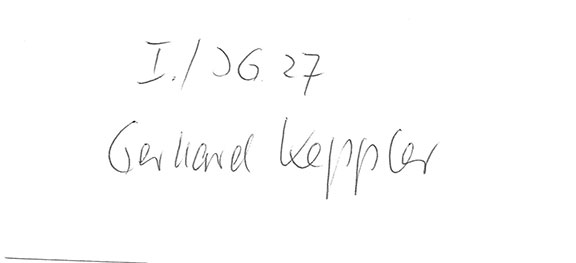 I./JG 27
Gerhard Keppler